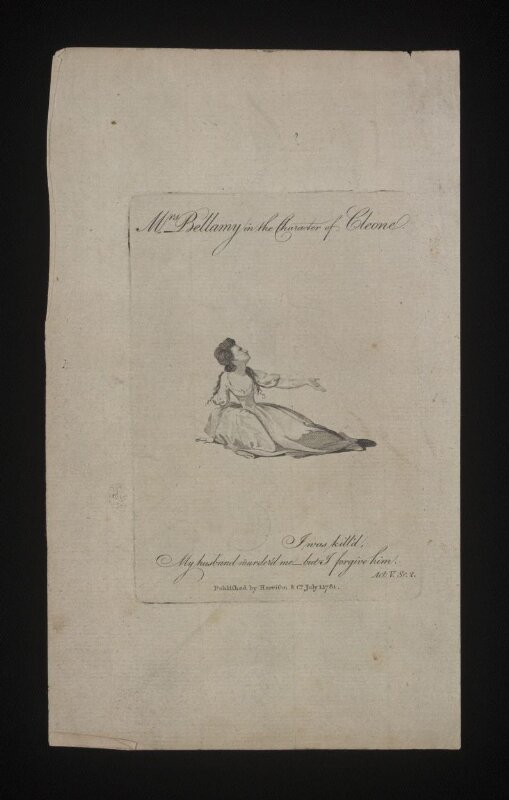 Mrs Bellamy in the Character of Cleone.
I was kill'd.
My husband murder'd me - but I forgive him.
Act V. Sc. 2.
Published by Harrison & Co. July 1, 1781.